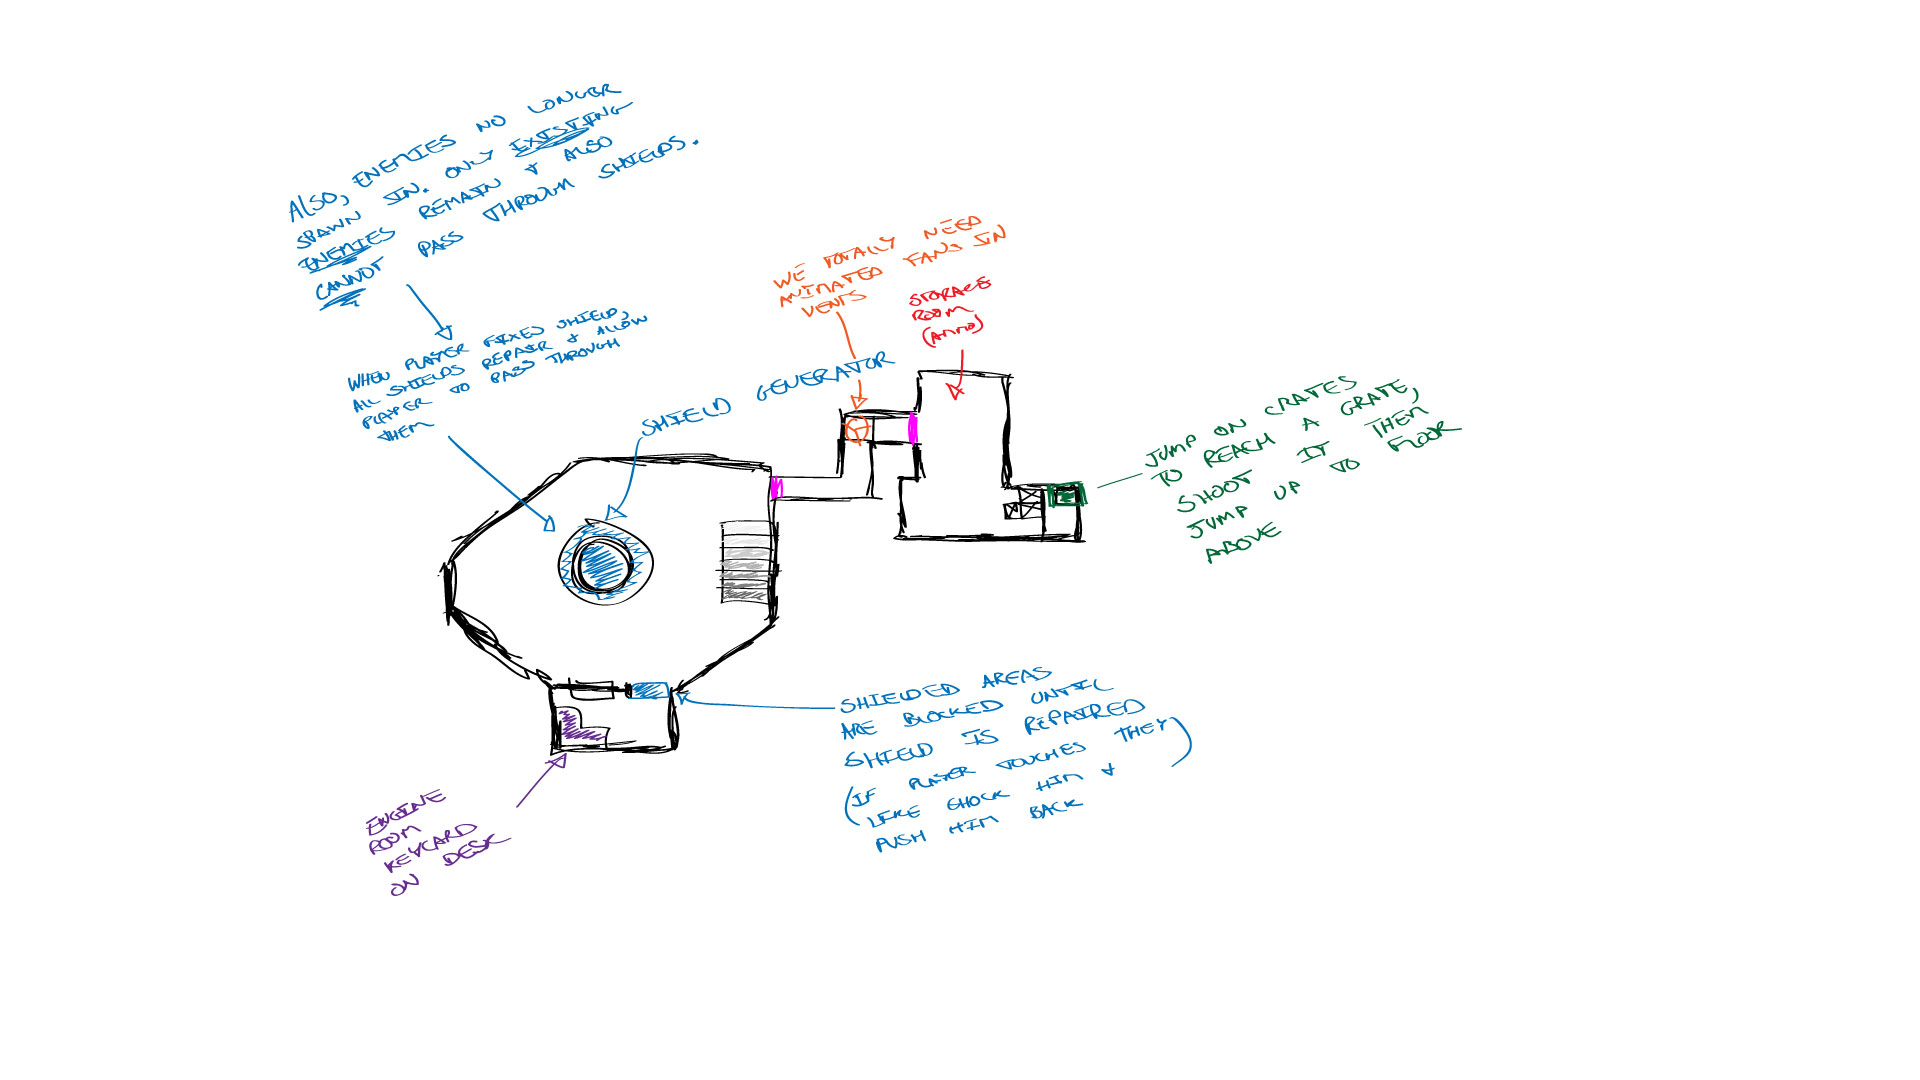 ALSO, ENEMIES NO LONGER
SPAWN IN. ONLY EXISTING
ENEMIES REMAIN & ALSO
CANNOT PASS THROUGH SHIELDS.
WHEN PLAYER FIXES SHIELD,
ALL SHIELDS REPAIR & ALLOW
PLAYER TO PASS THROUGH
THEM
SHIELD GENERATOR
WE TOTALLY NEED
ANIMATED FANS IN
VENTS
STORAGE
ROOM
(AMMO)
JUMP ON CRATES
TO REACH A GRATE,
SHOOT IT THEN
JUMP UP TO FLOOR
ABOVE
SHIELDED AREAS
ARE BLOCKED UNTIL
SHIELD IS REPAIRED
(IF PLAYER TOUCHES THEY
LIKE SHOCK HIM &
PUSH HIM BACK)
ENGINE
ROOM
KEYCARD
ON DESK